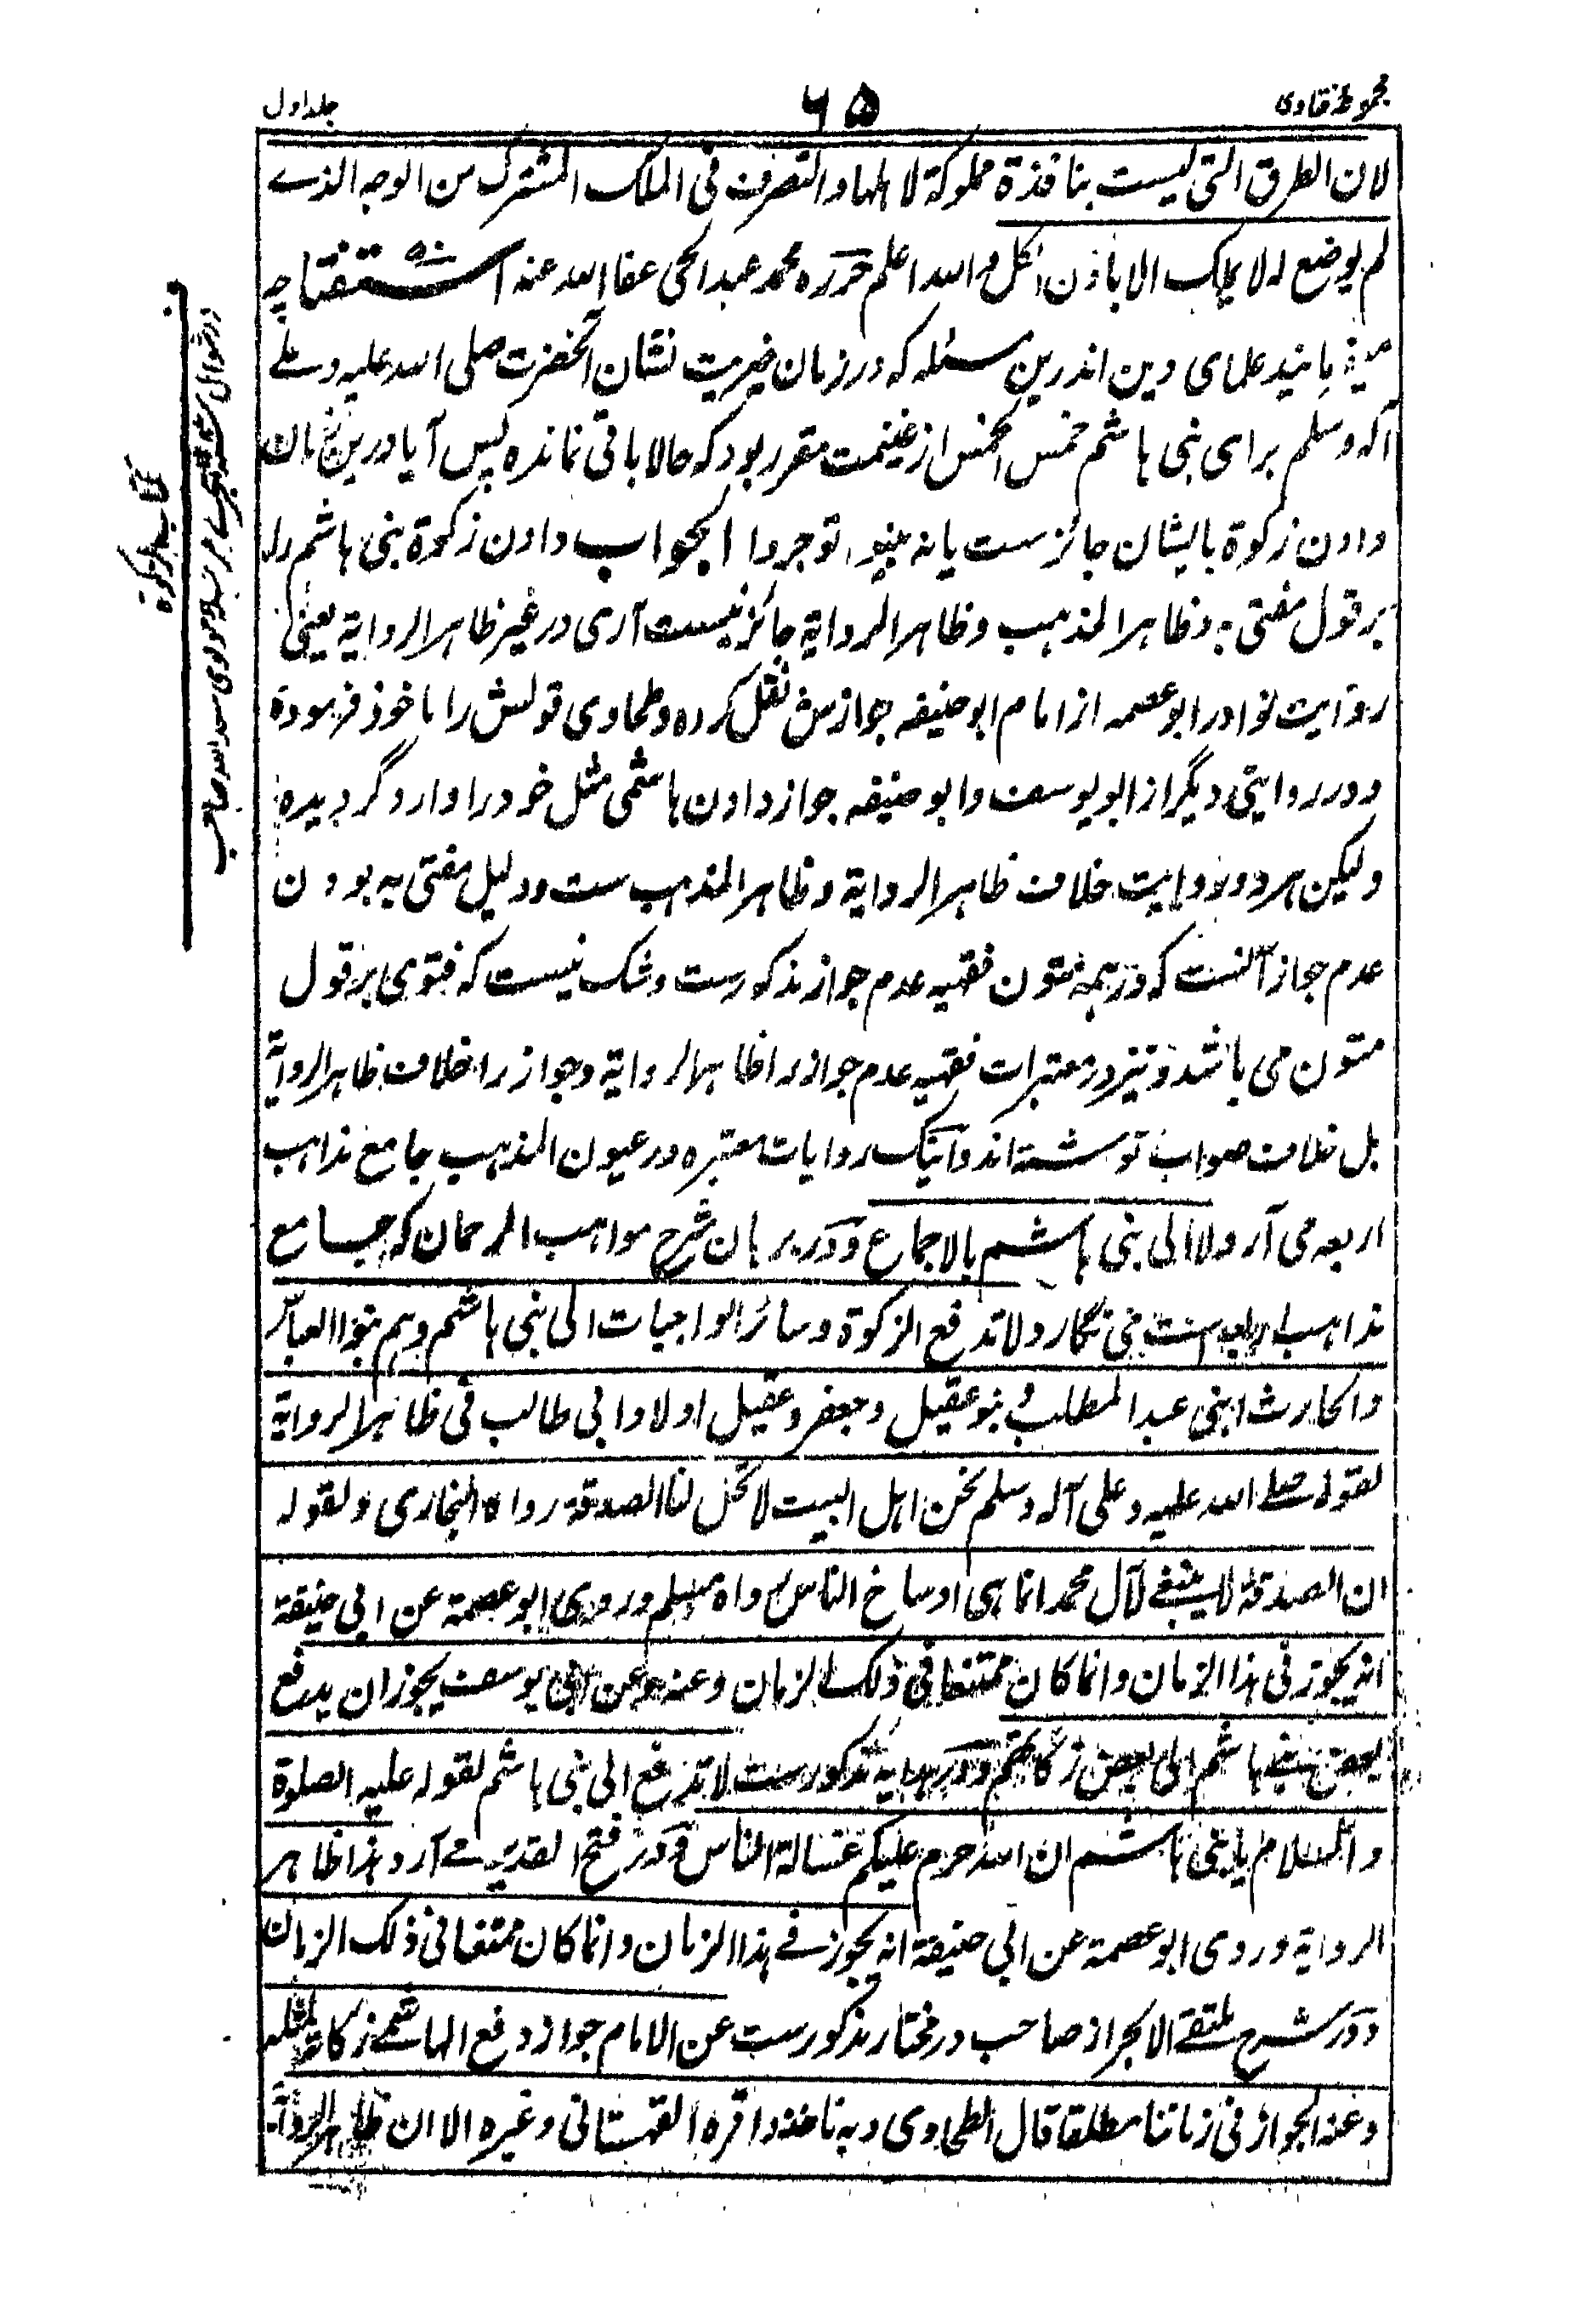 مجموعۂ فتاوی
۶۵
جلد اول
لان الطرق التی لیست بنافذة مملوکة لاهلها والتصرف فی الملک المشترک من الوجه الذے
لم یوضع له لا یملک الا باذن الکل واللہ اعلم حررہ محمد عبد الحی عفا اللہ عنہ استفتا چہ
میفرمایند علمای دین اندرین مسئلہ کہ در زمان خیریت نشان آنحضرت صلی اللہ علیہ و علے
آلہ وسلم برای بنی ہاشم خمس الخمس از غنیمت مقرر بود کہ حالا باقی نماندہ پس آیا درین زمان
دادن زکوٰة بایشان جائز ست یا نہ بینوا توجروا الجواب دادن زکوٰة بنی ہاشم را
بر قول مفتی بہ و ظاہر المذہب و ظاہر الروایة جائز نیست آری در غیر ظاہر الروایة یعنی
روایت نوادر ابو عصمہ از امام ابو حنیفہ جوازش نقل کردہ و طحاوی قولش را ماخوذ فرمودہ
و در روایتی دیگر از ابو یوسف و ابو حنیفہ جواز دادن ہاشمی مثل خود را وارد گردیدہ
ولیکن ہر دو روایت خلاف ظاہر الروایة و ظاہر المذہب ست و دلیل مفتی بہ بودن
عدم جواز آنست کہ در ہمہ متون فقہیہ عدم جواز مذکورست و شک نیست کہ فتوی بر قول
متون می باشد و نیز در معتبرات فقہیہ عدم جواز را ظاہر الروایة و جواز را خلاف ظاہر الروایة
بل خلاف صواب نوشتہ اند و اینک روایات معتبرہ در عیون المذہب جامع مذاہب
اربعہ می آرد ولا الی بنی ہاشم بالاجماع و در برہان شرح مواہب الرحمان کہ جامع
مذاہب اربعہ است می نگارد ولا تدفع الزکوٰة و سائر الواجبات الی بنی ہاشم وہم بنوا العباس
والحارث ابنی عبد المطلب و بنو عقیل و جعفر و عقیل اولاد ابی طالب فی ظاہر الروایة
لقولہ صلے اللہ علیہ و علی آلہ وسلم نحن اہل البیت لا تحل لنا الصدقة رواہ البخاری ولقولہ
ان الصدقة لا ینبغے لآل محمد انما ہی اوساخ الناس رواہ مسلم وروی ابو عصمة عن ابی حنیفة
انہ یجوز فی ہذا الزمان وانما کان ممتنعا فی ذلک الزمان وعنہ وعن ابی یوسف یجوز ان یدفع
بعض بنے ہاشم الی بعض زکاتہم و در ہدایہ مذکورست لا تدفع الی بنی ہاشم لقولہ علیہ الصلوة
والسلام یا بنی ہاشم ان اللہ حرم علیکم غسالة الناس و در فتح القدیر مے آرد ہذا ظاہر
الروایة وروی ابو عصمة عن ابی حنیفة انہ یجوز فے ہذا الزمان وانما کان ممتنعا فی ذلک الزمان
و در شرح ملتقے الابحر از صاحب در مختار مذکورست عن الامام جواز دفع الہاشمے زکاتہ لمثلہ
وعنہ الجواز فی زماننا مطلقا قال الطحاوی وبہ ناخذ واقرہ القہستانی وغیرہ الا ان ظاہر الروایة
کتاب الزکوٰة
در شوال
مولوی سعد اللہ صاحب